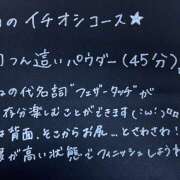 のイチオシコース★
つん這いパウダー(45分)
の代名詞"フェザータッチ"が
存分楽しむことができます(:'ω':)
は背面、そこからお尻…とさわさわ!
度が高い状態でフィニッシュしよう